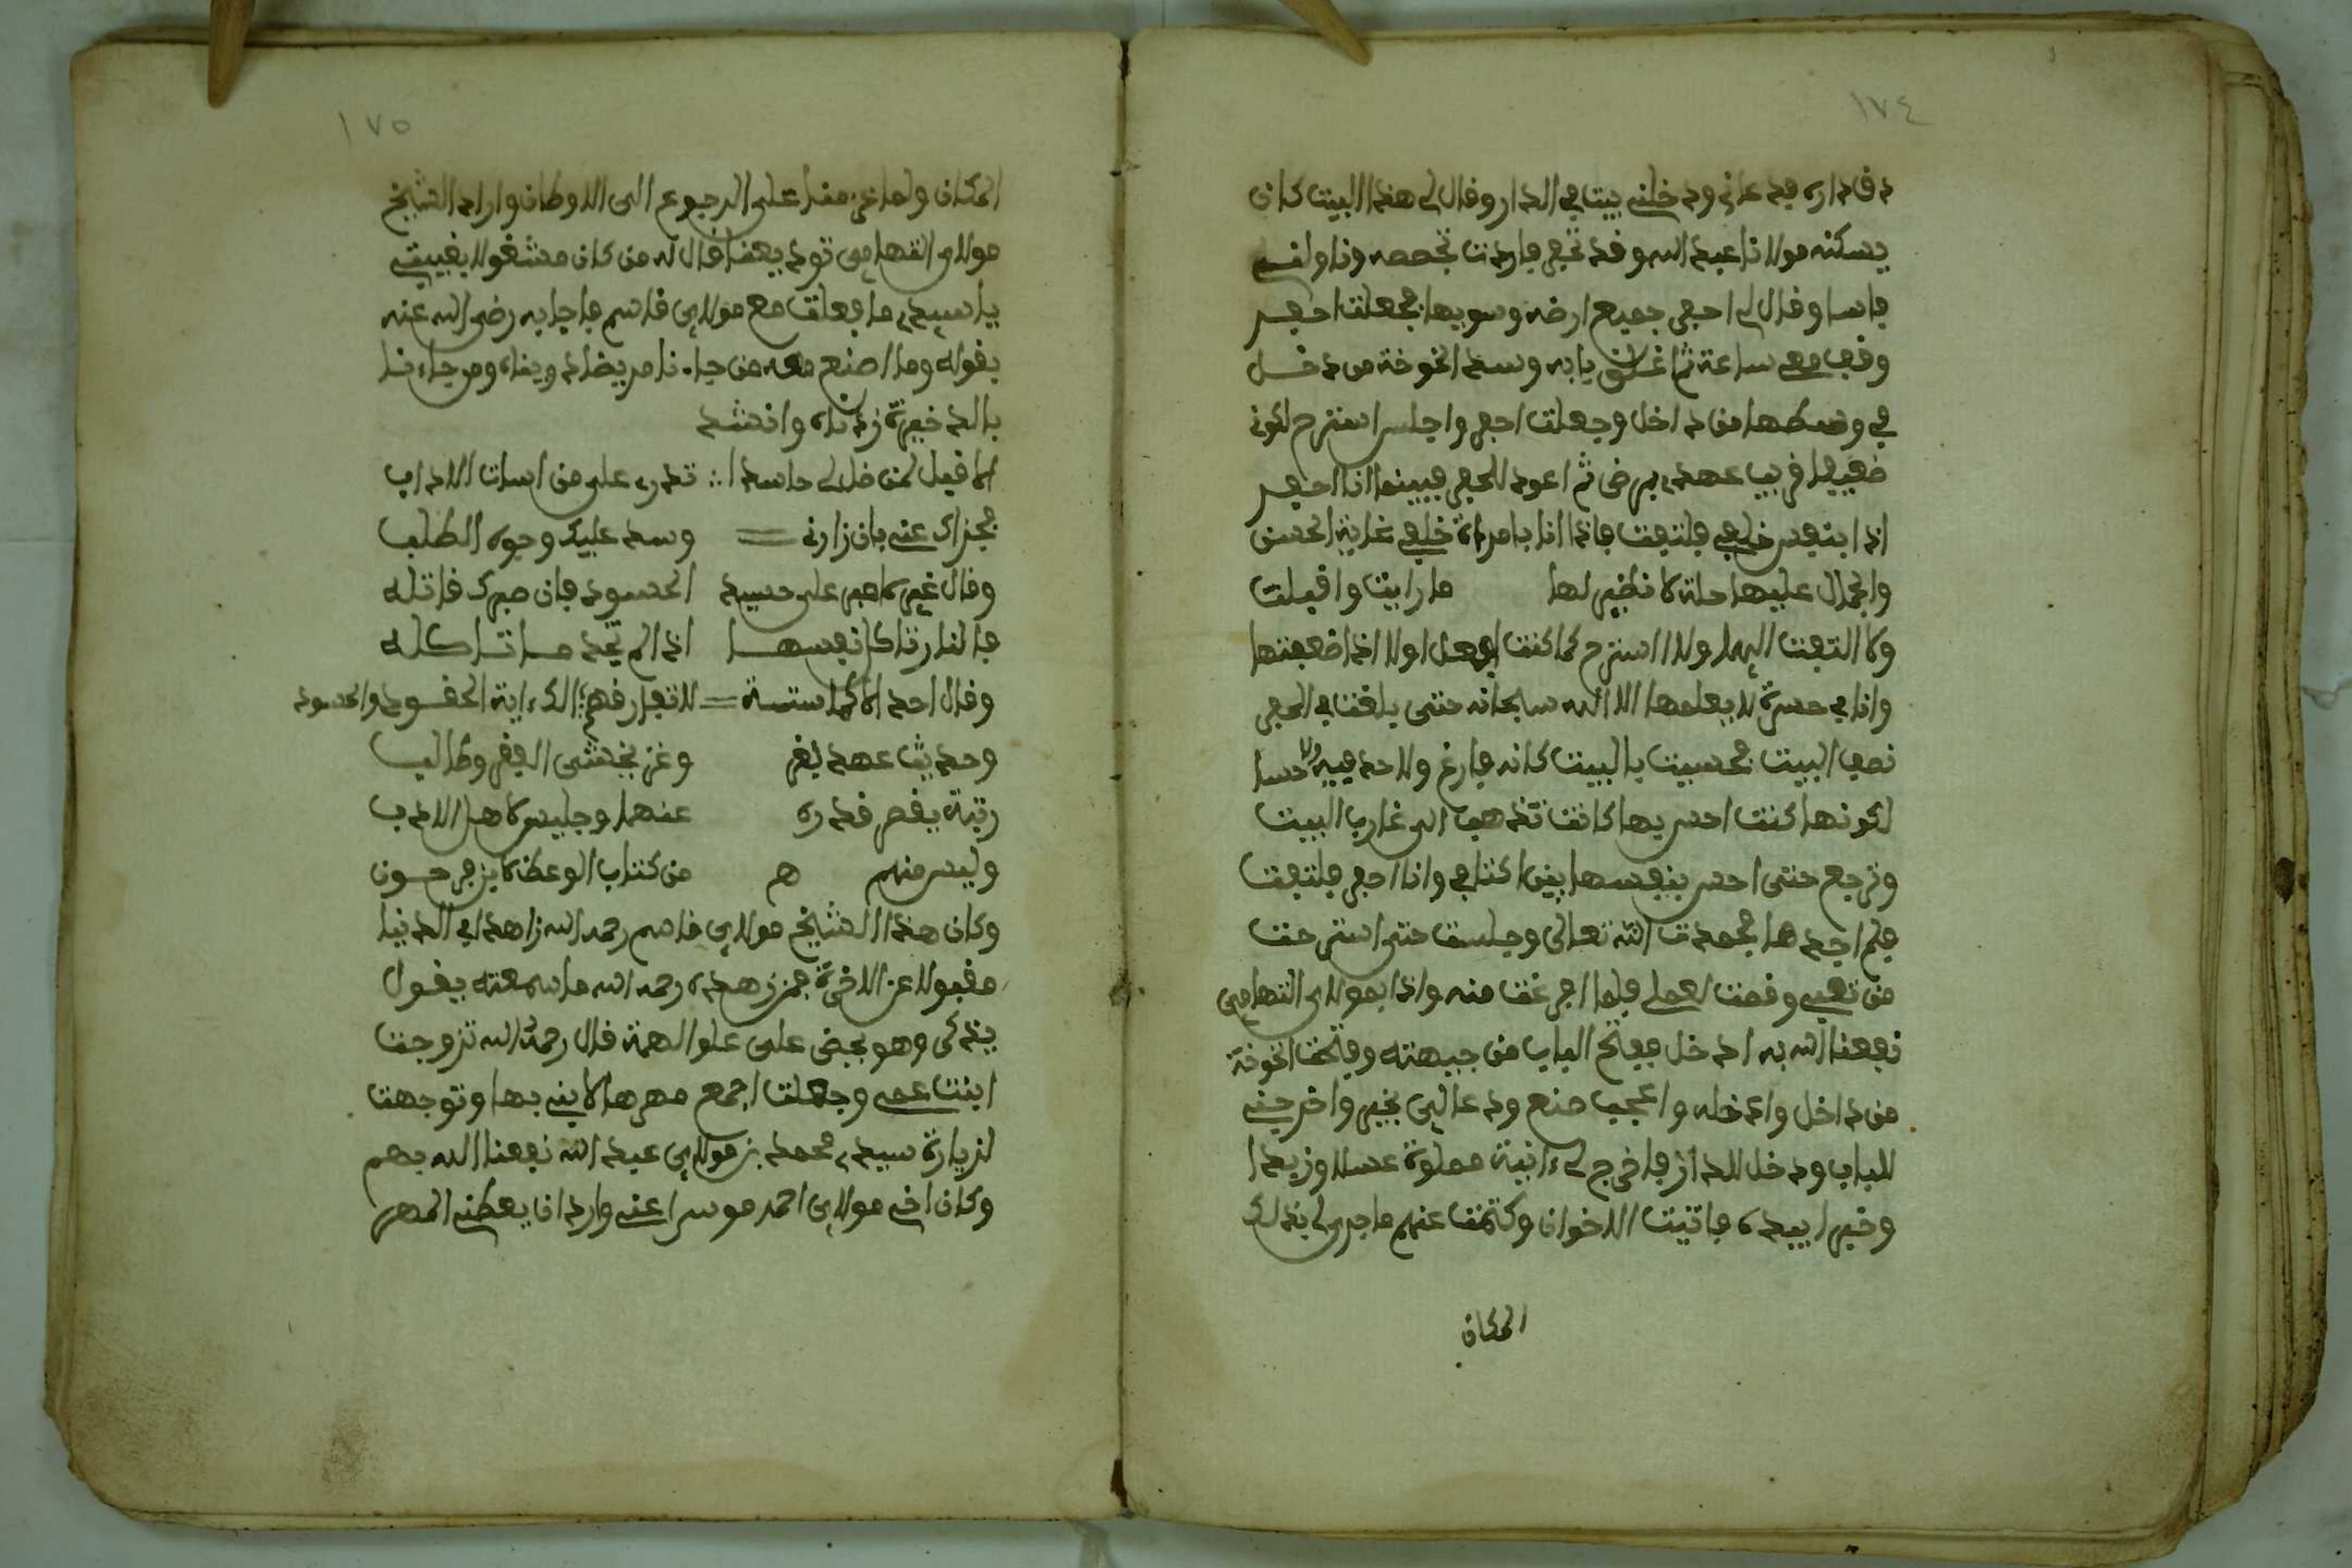 ١٧٤
دق داره فدعاني ودخلني بيتا في الدار وقال لي هذا البيت كان
يسكنه مولانا عبد الله وقد تحجر فاردت تجصصه وناولني
فاسا وقال لي احفر جميع ارضه وسويها فجعلت احفر
وقف معي ساعة ثم غلق بابه وسد الخوخة من دخل
في وسطها من داخل وجعلت احفر واجلس استرح لكوني
ضعيفا قريب عهد بمرض ثم اعود للحفر فبينما انا احفر
اذا بنفس خلفي فلتفت فاذا انا بامراة خلفي غاية الحسن
والجمال عليها حلة لا نظير لها ما رايت واقبلت
ولا التفت اليها ولا استرح كما كنت افعل اولا اذا ضعفتها
وانا في حسرة لا يعلمها الا الله سبحانه حتى بلغت في الحفر
نصف البيت فحسيت بالبيت كانه فارغ ولا احد فيه ولا حسا
لكونها كنت احس بها كانت تذهب الى غارب البيت
وترجع حتى احس بنفسها بين اكتافي وانا احفر فلتفت
فلم اجدها فحمدت الله تعالى وجلست حتى استرحت
من تعبي وقمت لعملي فلما افرغت منه واذا بمولاي التهامي
نفعنا الله به ادخل ففتح الباب من جهته وفتحت الخوخة
من داخل وادخله واعجب صنع ودعا لي بخير واخرجني
للباب ودخل للدار فاخرج لي ءانية مملوة عسلا وزبدا
وخبزا بيده فاتيت الاخوان وكتمت عنهم ما جرى لي بذلك
المكان
١٧٥
المكان ولما عزمنا على الرجوع الى الاوطان واراد الشيخ
مولاي التهامي توديعنا قال له من كان مشغولا بغيبتي
يا سيدي ما فعلت مع مولاي قاسم فاجابه رضي الله عنه
بقوله وما اصنع معه من جاءنا مريضا داويناه ومن جاءنا
بالدخيرة زدناه وانشد
الا قيل لمن ظل لي حاسدا ؞ تدري على من اسات الادب
فجزاك عني بان زادني = وسد عليك وجوه الطلب
وقال غيره اصبر على حسد الحسود فان صبرك قاتله
فالنار تاكل نفسها اذا لم تجد ما تاكله
وقال احد الاكما ستة = لا تفارقهم الكءابة الحقود والحسود
وحديث عهد بغنى وغني يخشى الفقر وطالب
رتبة يقصر قدره عنها وجليس اهل الادب
وليس منهم هم من كتاب الوعظ
وكان هذا الشيخ مولاي قاسم رحمه الله زاهدا في الدنيا
مقبولا عن الاخرة فمن زهده رحمه الله ما سمعته يقول
يذكر وهو يحض على علو الهمة قال رحمه الله تزوجت
ابنت عمي وجعلت اجمع مهرها لابني بها وتوجهت
لزيارة سيدي محمد بن مولاي عبد الله نفعنا الله بهم
وكان اخي مولاي احمد موسرا عني واراد ان يعطني المهر